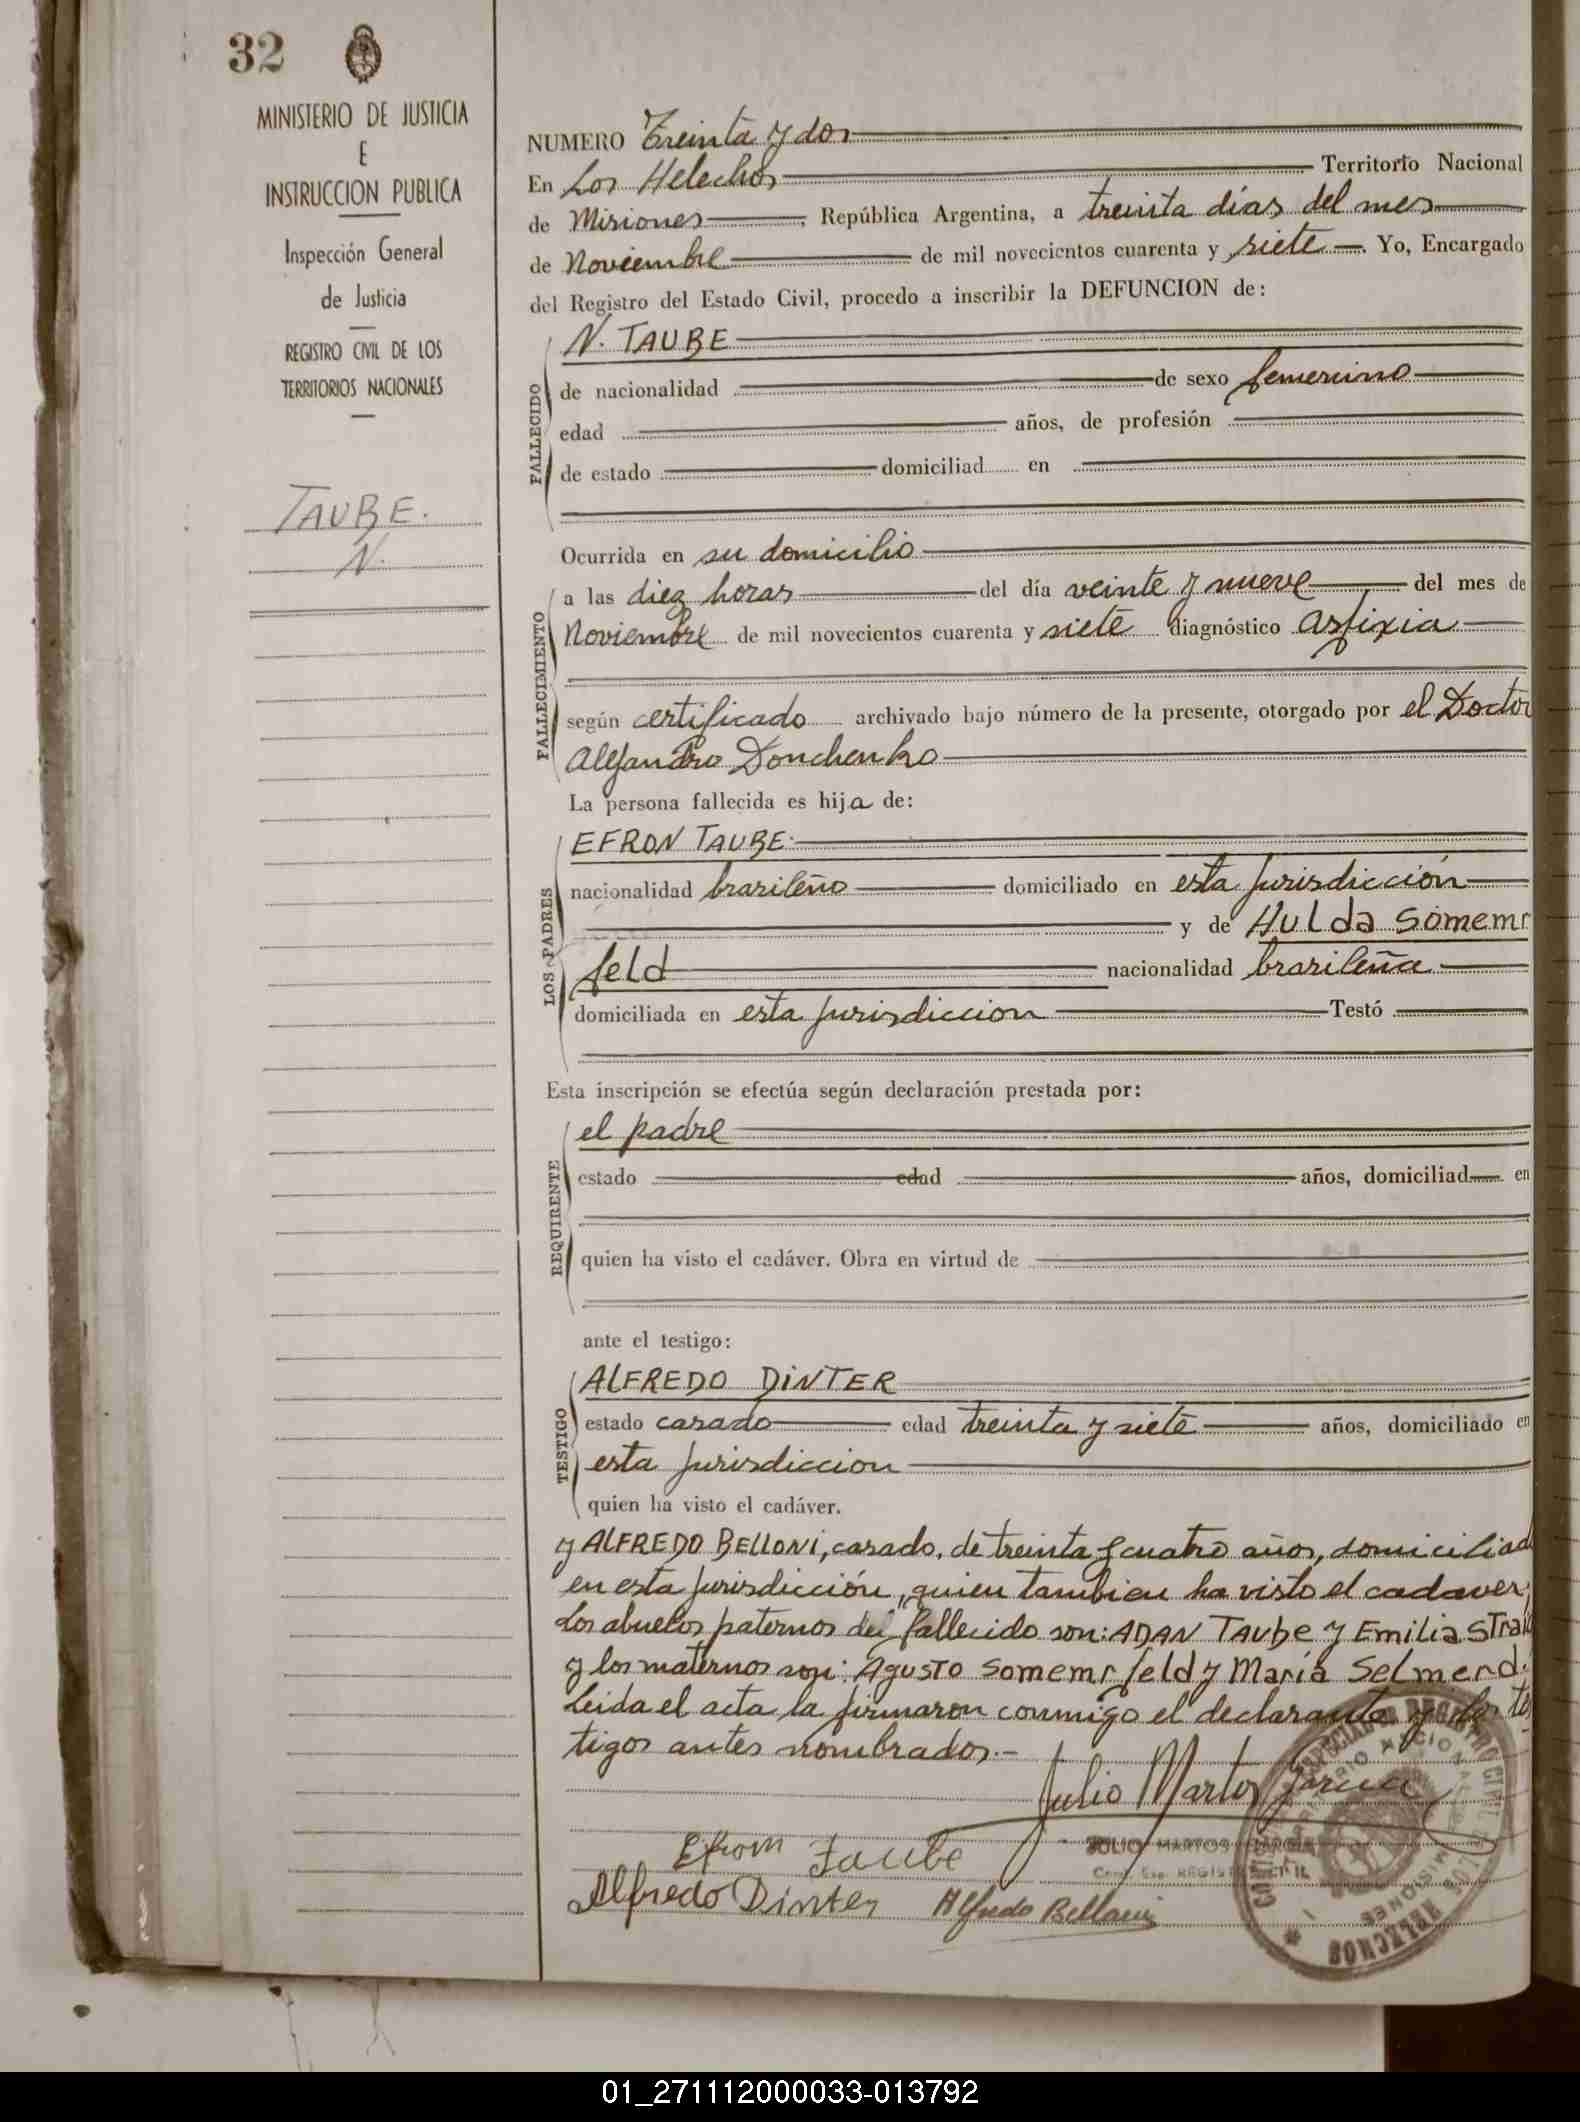 32
MINISTERIO DE JUSTICIA
E
INSTRUCCION PUBLICA
Inspección General
de Justicia
REGISTRO CIVIL DE LOS
TERRITORIOS NACIONALES
TAUBE.
N.
NUMERO Treinta y dos
En Los Helechos Territorio Nacional
de Misiones, República Argentina, a treinta días del mes
de Noviembre de mil novecientos cuarenta y siete. Yo, Encargado
del Registro del Estado Civil, procedo a inscribir la DEFUNCION de:
FALLECIDO
N. TAUBE
de nacionalidad de sexo femenino
edad años, de profesión
de estado domiciliad en
FALLECIMIENTO
Ocurrida en su domicilio
a las diez horas del día veinte y nueve del mes de
Noviembre de mil novecientos cuarenta y siete diagnóstico asfixia
según certificado archivado bajo número de la presente, otorgado por el Doctor
Alejandro Donchenko
La persona fallecida es hija de:
LOS PADRES
EFRON TAUBE
nacionalidad brasileño domiciliado en esta jurisdicción
y de Hulda Somemr
feld nacionalidad brasileña
domiciliada en esta jurisdiccion Testó
Esta inscripción se efectúa según declaración prestada por:
REQUIRENTE
el padre
estado edad años, domiciliad en
quien ha visto el cadáver. Obra en virtud de
ante el testigo:
TESTIGO
ALFREDO DINTER
estado casado edad treinta y siete años, domiciliado en
esta jurisdiccion
quien ha visto el cadáver.
y ALFREDO BELLONI, casado, de treinta y cuatro años, domiciliad
en esta jurisdicción, quien tambien ha visto el cadaver;
Los abuelos paternos del fallecido son: ADAN TAUBE y Emilia
y los maternos son: Agusto Somemrfeld y María Selmend.
Leida el acta la firmaron conmigo el declarante y los tes
tigos antes nombrados.-
Julio Martos Garcia
Efrom Taube
JULIO MARTOS GARCIA
REGISTRO CIVIL
Alfredo Dinter Alfredo Belloni
REGISTRO CIVIL
MISIONES
HELECHOS
01_271112000033-013792